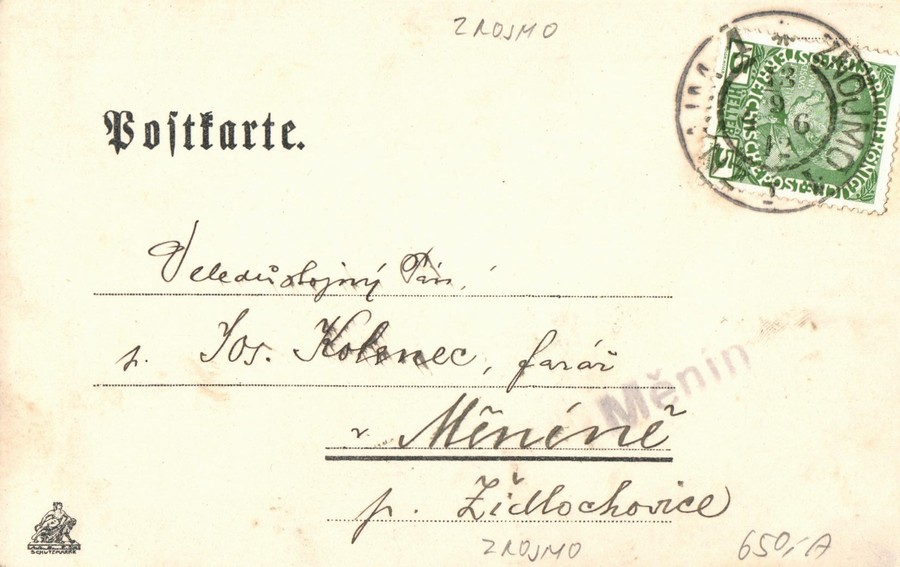 ZNOJMO
Postkarte.
ZNOJMO
13
9 6
12
5 HELLER 5
Veledůstojný Pán,
p. Jos. Kolenec, farář
Měnín
v. Měníně
p. Židlochovice
SCHUTZMARKE
ZNOJMO
650,- A